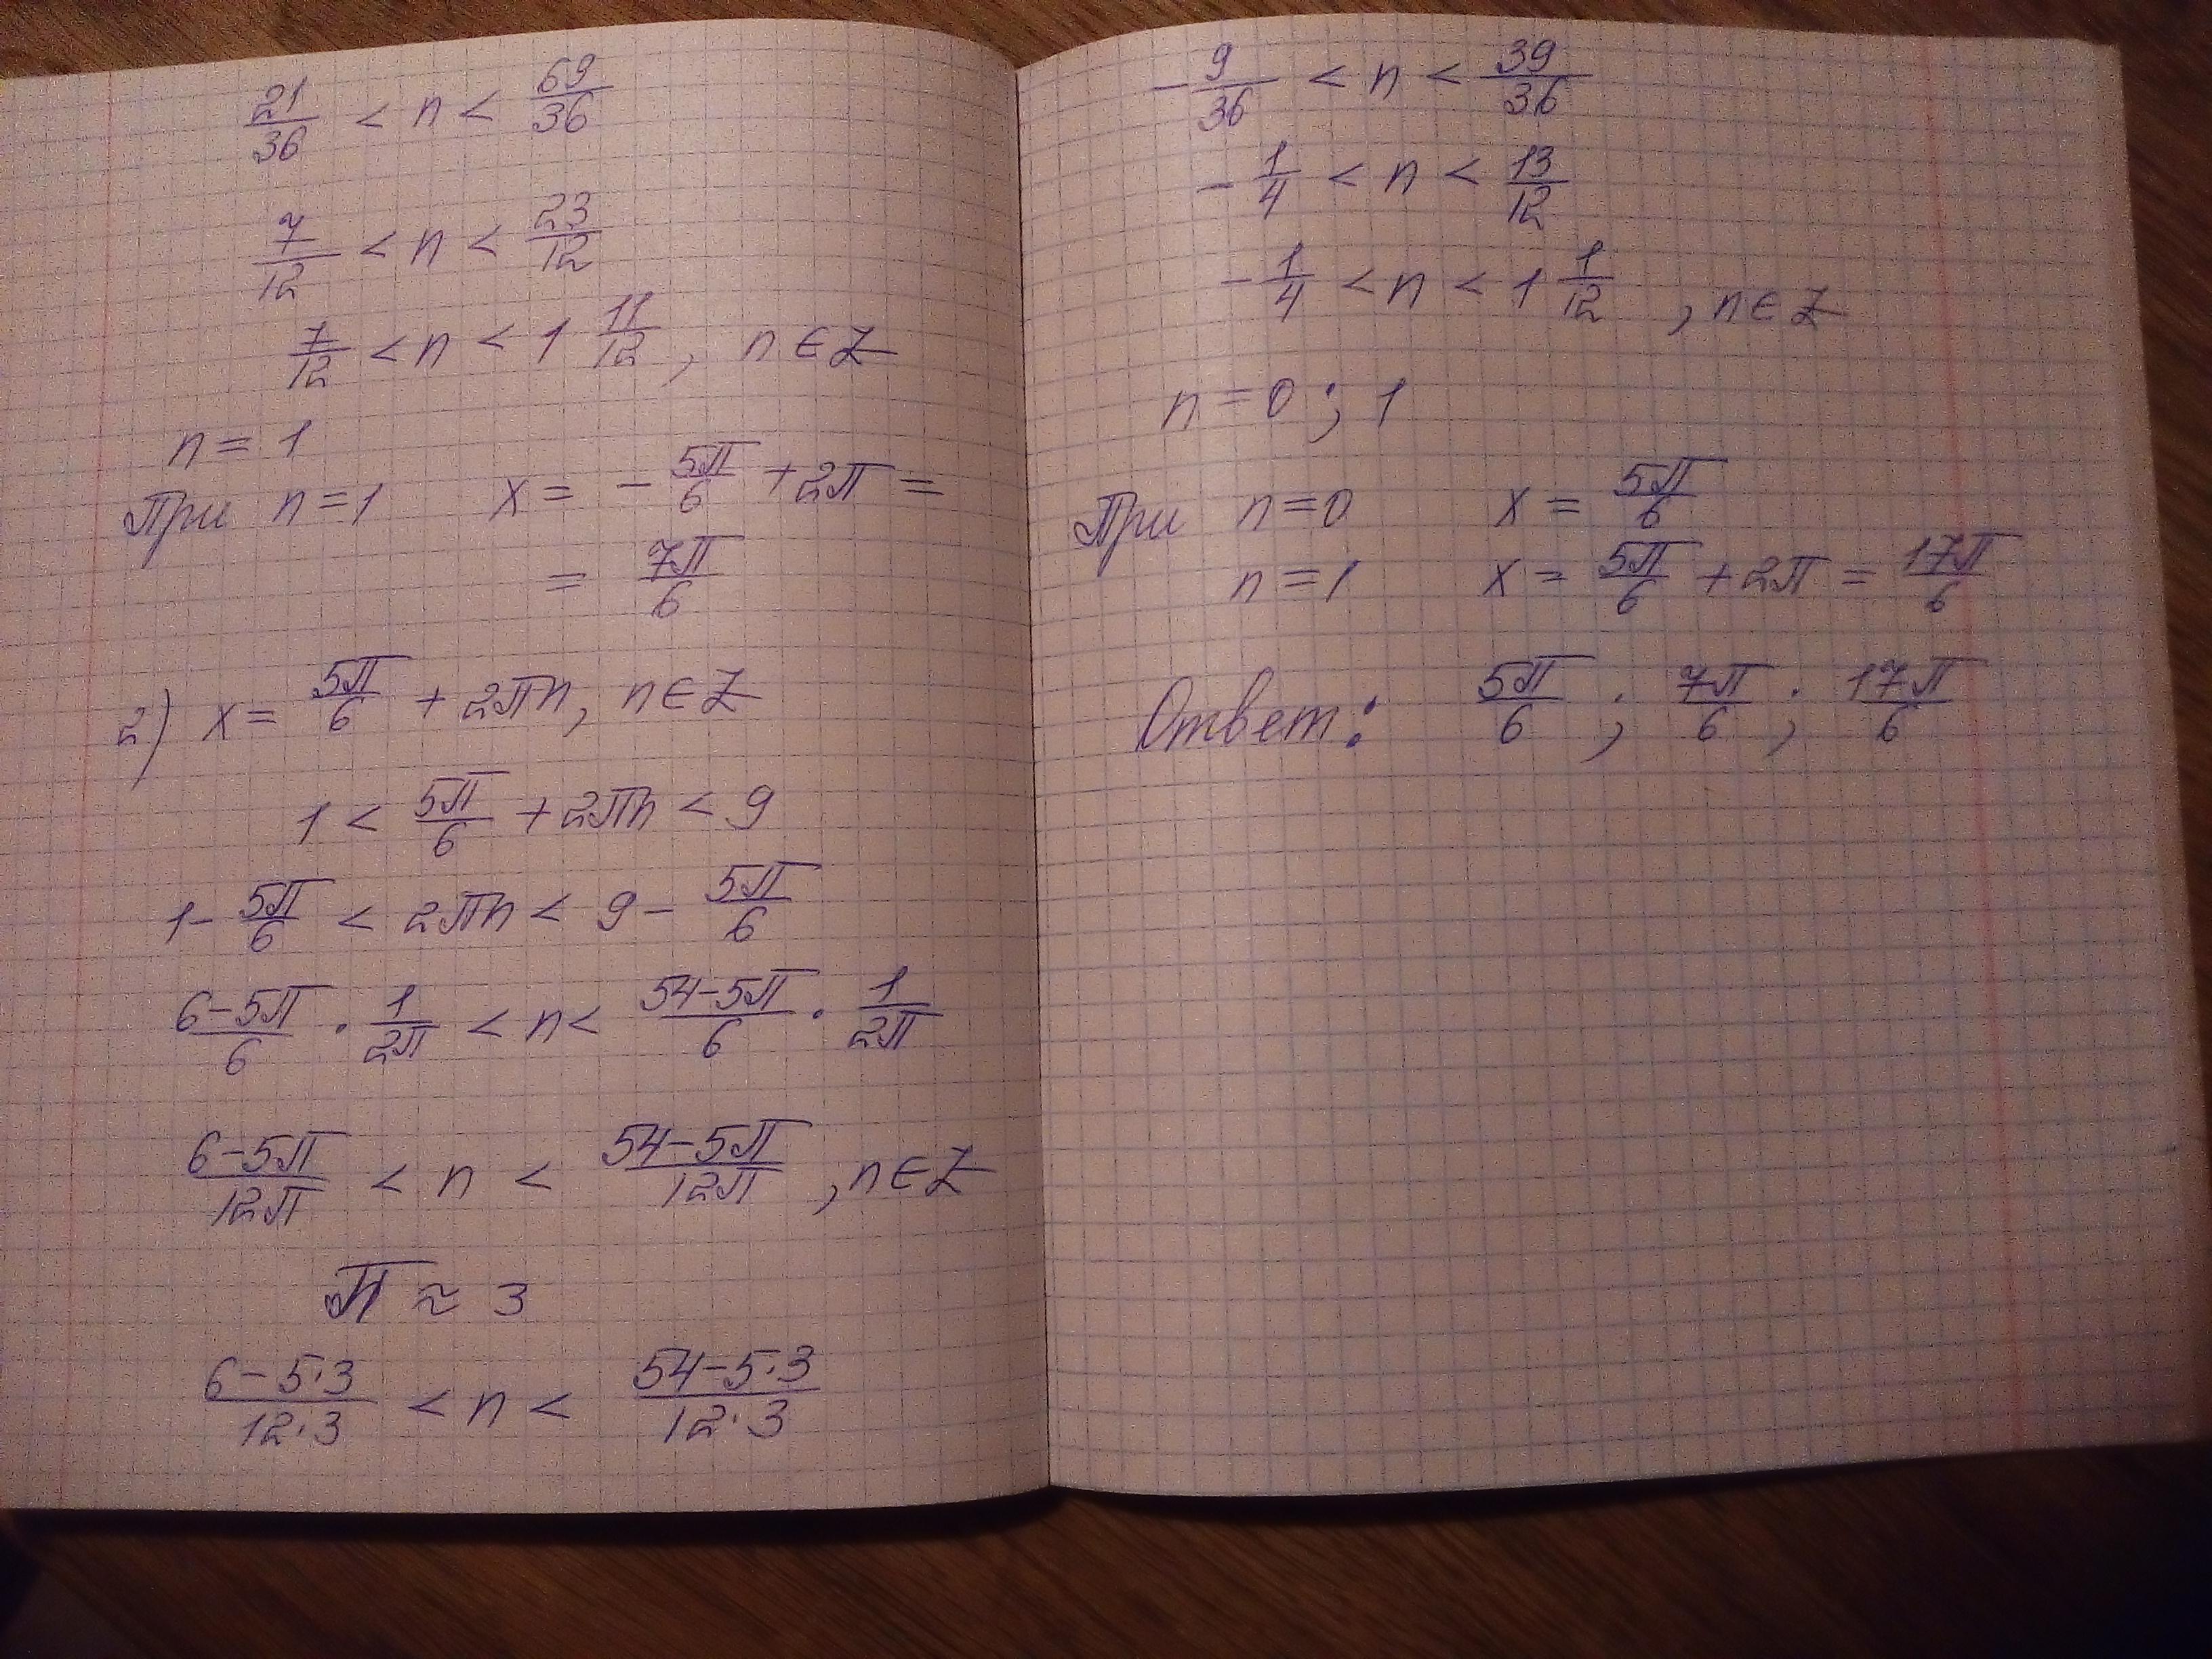 21/36 < n < 69/36
7/12 < n < 23/12
7/12 < n < 1 11/12, n ∈ Z
n = 1
При n = 1 x = - 5π/6 + 2π =
= 7π/6
2) x = 5π/6 + 2πn, n ∈ Z
1 < 5π/6 + 2πn < 9
1 - 5π/6 < 2πn < 9 - 5π/6
(6-5π)/6 · 1/2π < n < (54-5π)/6 · 1/2π
(6-5π)/12π < n < (54-5π)/12π, n ∈ Z
π ≈ 3
(6-5·3)/(12·3) < n < (54-5·3)/(12·3)
- 9/36 < n < 39/36
- 1/4 < n < 13/12
- 1/4 < n < 1 1/12, n ∈ Z
n = 0; 1
При n = 0 x = 5π/6
n = 1 x = 5π/6 + 2π = 17π/6
Ответ: 5π/6; 7π/6; 17π/6